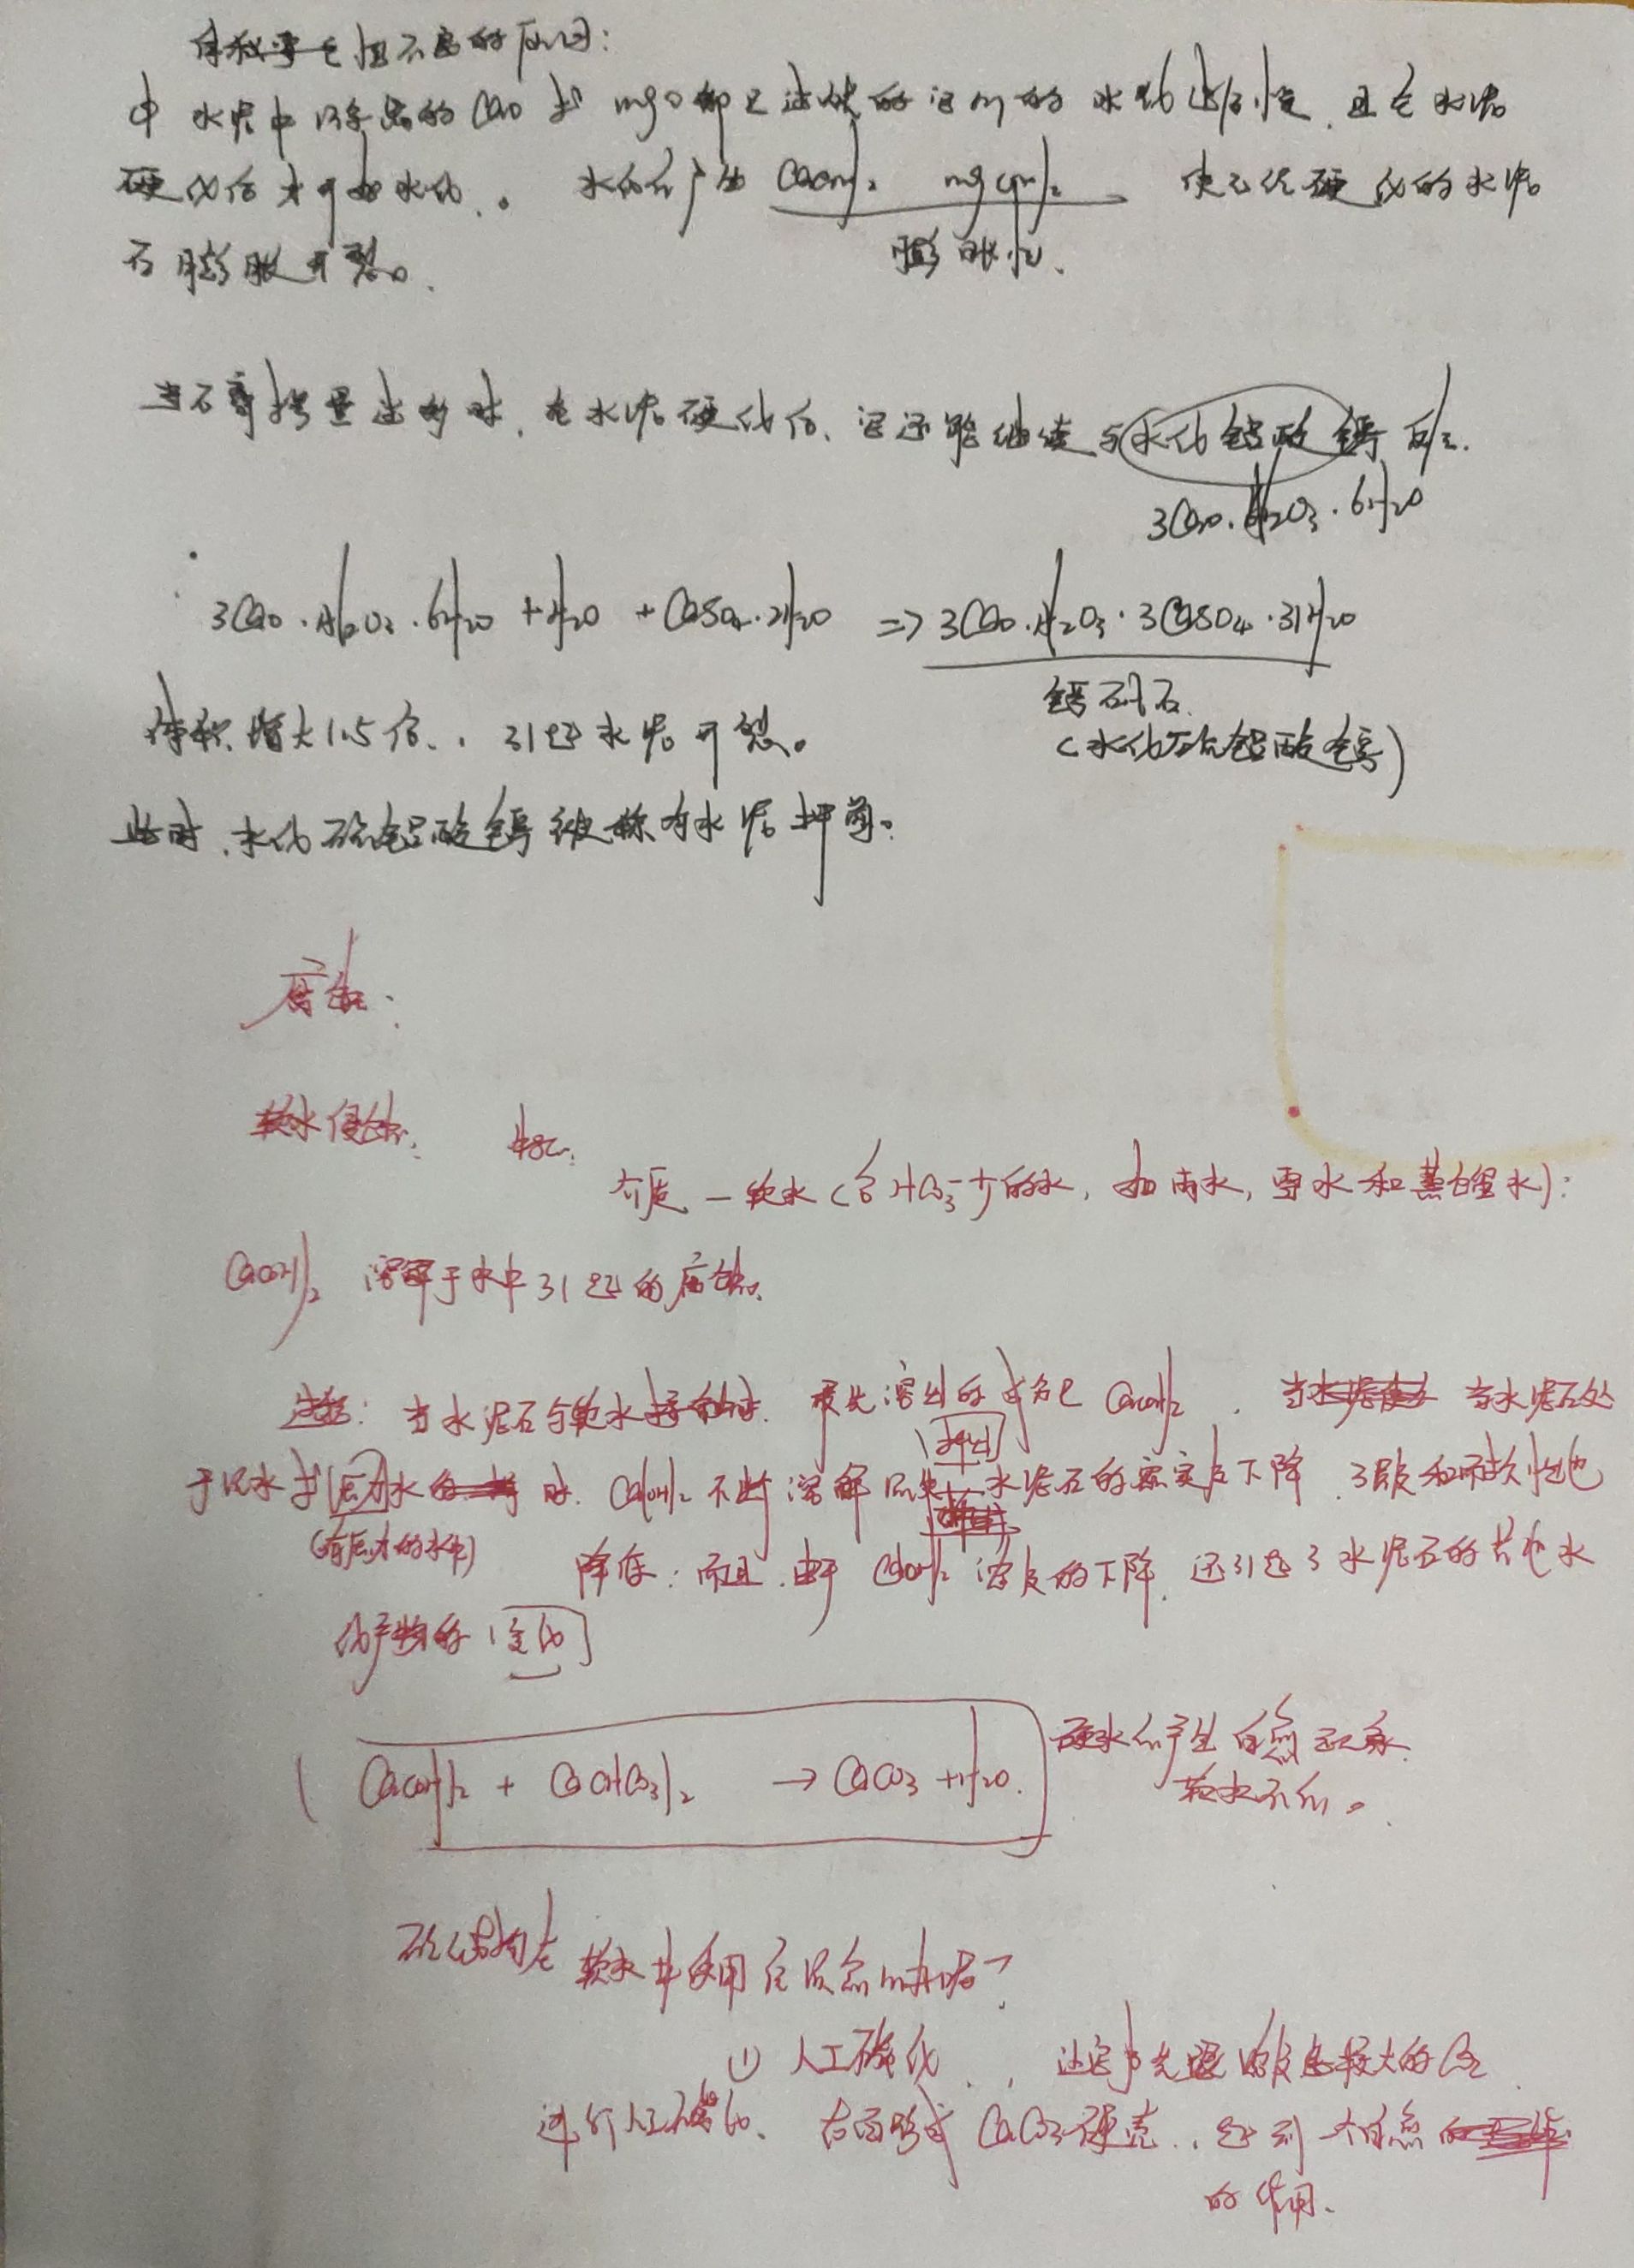 体积安定性不良的原因:
中 水泥中所含的 CaO 或 MgO 都是过烧的 它们的水化速度慢,且在水泥
硬化后才开始水化。水化后产生 Ca(OH)₂ Mg(OH)₂ 使已经硬化的水泥
膨胀性.
石膨胀开裂。
当石膏掺量过多时,在水泥硬化后,它还能继续与水化铝酸钙反应.
3CaO·Al₂O₃·6H₂O
3CaO·Al₂O₃·6H₂O + H₂O + CaSO₄·2H₂O => 3CaO·Al₂O₃·3CaSO₄·31H₂O
钙矾石.
体积增大1.5倍, 引起水泥开裂。
(水化硫铝酸钙)
此时,水化硫铝酸钙被称为水泥杆菌。
腐蚀:
软水侵蚀:
介质 — 软水(含HCO₃⁻少的水, 如雨水, 雪水和蒸馏水):
Ca(OH)₂ 溶解于水中引起的腐蚀。
过程: 当水泥石与软水接触时, 最先溶出的成分是 Ca(OH)₂. 当水泥石处
[析出]
于流水或压力水 时, Ca(OH)₂ 不断溶解流失 水泥石的密实度下降,强度和耐久性也
(有压力的水中)
降低; 而且,由于 Ca(OH)₂ 浓度的下降, 还引起了水泥石的其他水
化产物的[变化]
(Ca(OH)₂ + Ca(HCO₃)₂ → CaCO₃ + H₂O.
硬水会产生自愈现象.
软水不会。
软水中采用
① 人工碳化, 让它事先跟浓度较大的CO₂
进行人工碳化, 表面形成 CaCO₃ 硬壳, 起到一个自愈
的作用.